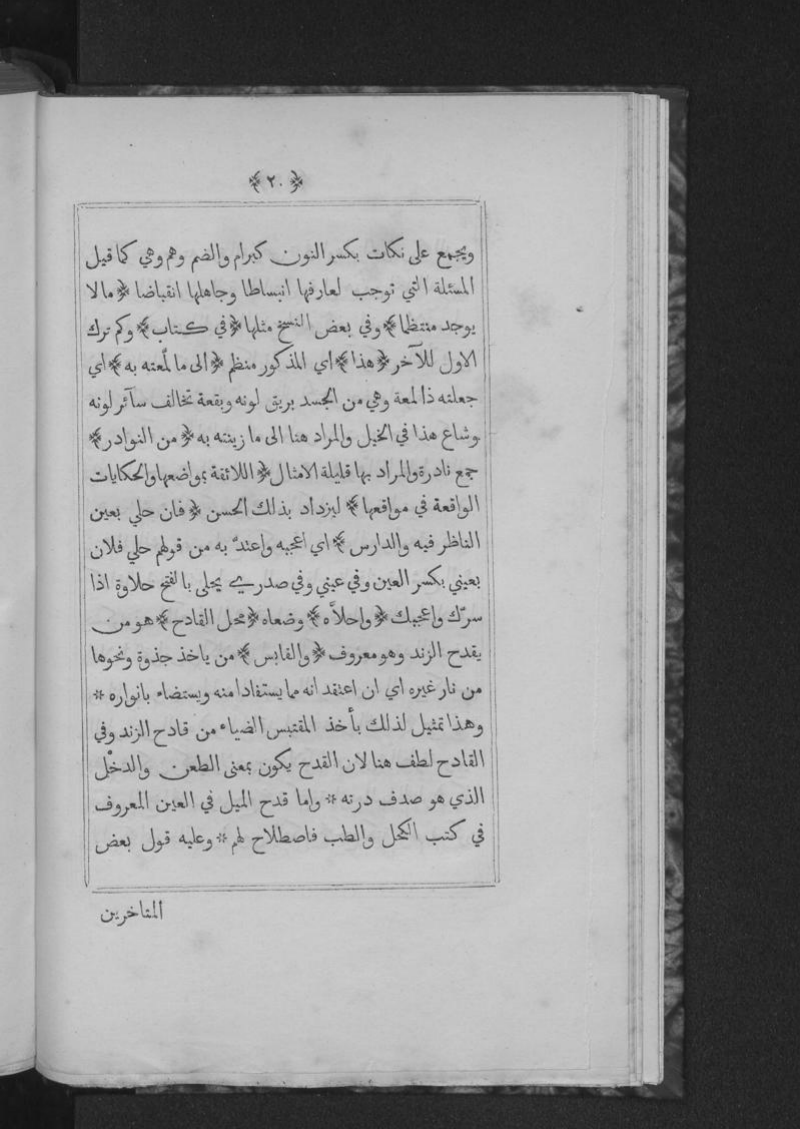 ﴿٢٠﴾
ويجمع على نكات بكسر النون كبرام والضم وهم وهي كما قيل
المسئلة التي توجب لعارفها انبساطا وجاهلها انقباضا ﴿ما لا
يوجد منتظما﴾ وفي بعض النسخ مثلها ﴿في كتاب﴾ وكم ترك
الاول للآخر ﴿هذا﴾ اي المذكور منظم ﴿الى ما لمعته به﴾ اي
جعلته ذا لمعة وهي من الجسد بريق لونه وبقعة تخالف سآئر لونه
وشاع هذا في الخيل والمراد هنا الى ما زينته به ﴿من النوادر﴾
جمع نادرة والمراد بها قليلة الامثال ﴿اللائقة بمواضعها والحكايات
الواقعة في مواقعها﴾ ليزداد بذلك الحسن ﴿فان حلي بعين
الناظر فيه والدارس﴾ اي اعجبه واعتدّ به من قولهم حلي فلان
بعيني بكسر العين وفي عيني وفي صدري يحلى بالفتح حلاوة اذا
سرّك واعجبك ﴿واحلاّه﴾ وضعاه ﴿محل القادح﴾ هو من
يقدح الزند وهو معروف ﴿والقابس﴾ من ياخذ جذوة ونحوها
من نار غيره اي ان اعتقد انه مما يستفاد منه ويستضاء بانواره *
وهذا تمثيل لذلك بأخذ المقتبس الضياء من قادح الزند وفي
القادح لطف هنا لان القدح يكون بمعنى الطعن والدخْل
الذي هو صدف درته * واما قدح الميل في العين المعروف
في كتب الكحل والطب فاصطلاح لهم * وعليه قول بعض
المتاخرين